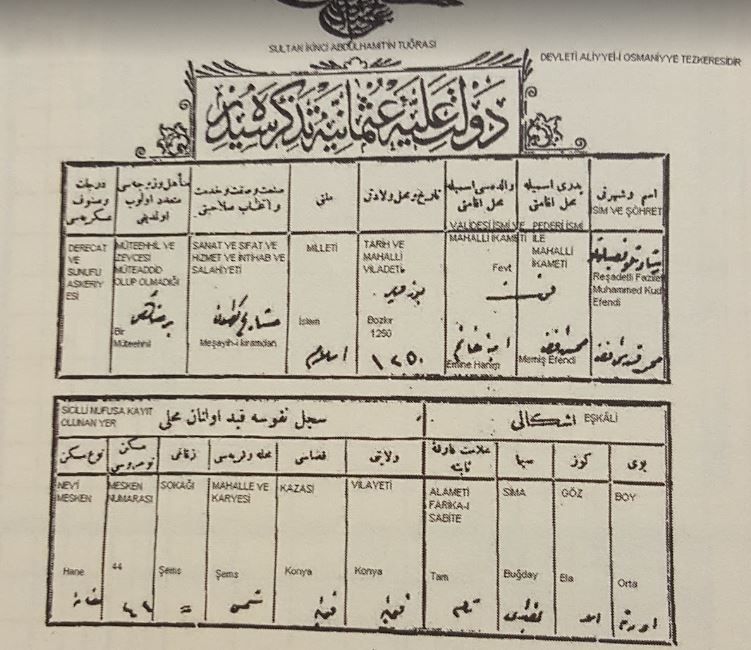 SULTAN İKİNCİ ABDÜLHAMİTİN TUĞRASI
DEVLETİ ALİYYEİ-İ OSMANİYYE TEZKERESİDİR
دولت علیه عثمانیه تذکره سیدر
اسم و شهرتی
İSİM VE ŞÖHRET
Reşadetli Fazilet
Muhammed Kud
Efendi
پدری اسمیله
محل اقامتی
PEDERİ İSMİ
İLE
MAHALLİ
İKAMETİ
Memiş Efendi
والده سی اسمیله
محل اقامتی
VALİDESİ İSMİ VE
MAHALLİ İKAMETİ
Fevt
فوت
Emine Hanım
امینه خانم
تاریخ و محل ولادتی
TARİH VE
MAHALLİ
VİLADETİ
بوزقیر
Bozkır
1250
١٢٥٠
ملتی
MİLLETİ
İslam
اسلام
صنعت و صفت و خدمت
و انتخاب صلاحیتی
SANAT VE SIFAT VE
HİZMET VE İNTİHAB VE
SALAHİYETİ
Meşayih-i kiramdan
متأهل و زوجه سی
متعدد اولوب
اولمدیغی
MÜTEEHHİL VE
ZEVCESİ
MÜTEADDİD
OLUP OLMADIĞI
Bir
Müteehhil
درجات
و صنوف
عسکریه سی
DERECAT
VE
SUNUFU
ASKERİY
ESİ
اشکالی
EŞKÂLİ
سجل نفوسه قید اولنان محلی
SİCİLLİ NUFUSA KAYIT
OLUNAN YER
بوی
BOY
Orta
اورته
کوز
GÖZ
Ela
سیما
SİMA
Buğday
علامت فارقۀ
ثابته
ALAMETİ
FARİKA-I
SABİTE
Tam
تام
ولایتی
VİLAYETİ
Konya
قونیه
قضاسی
KAZASI
Konya
قونیه
محله و قریه سی
MAHALLE VE
KARYESİ
Şems
شمس
زقاغی
SOKAĞI
Şems
=
مسکن
نومروسی
MESKEN
NUMARASI
44
نوع مسکن
NEVİ
MESKEN
Hane
خانه